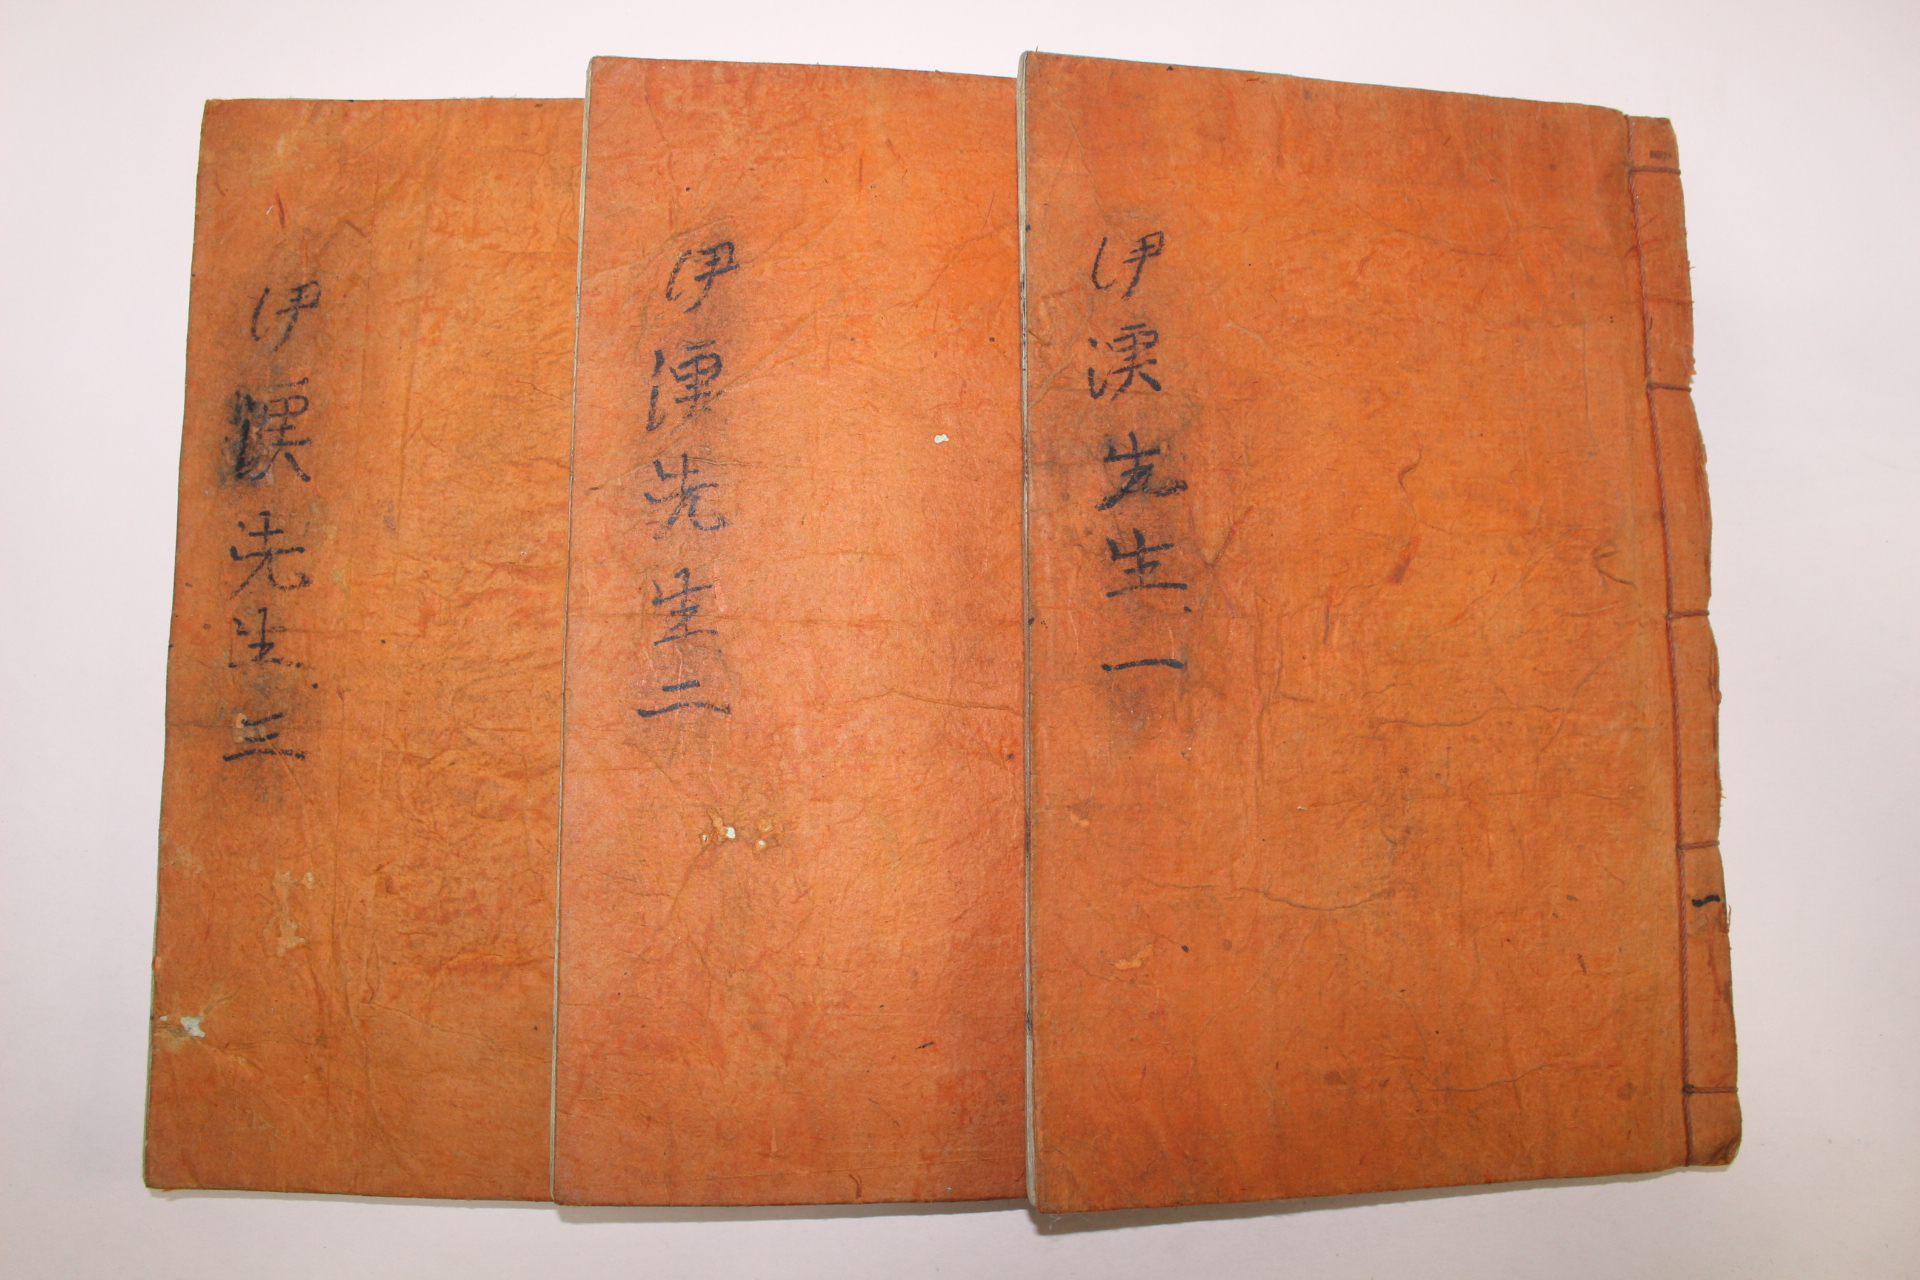 伊溪先生一
伊溪先生二
伊溪先生三
一